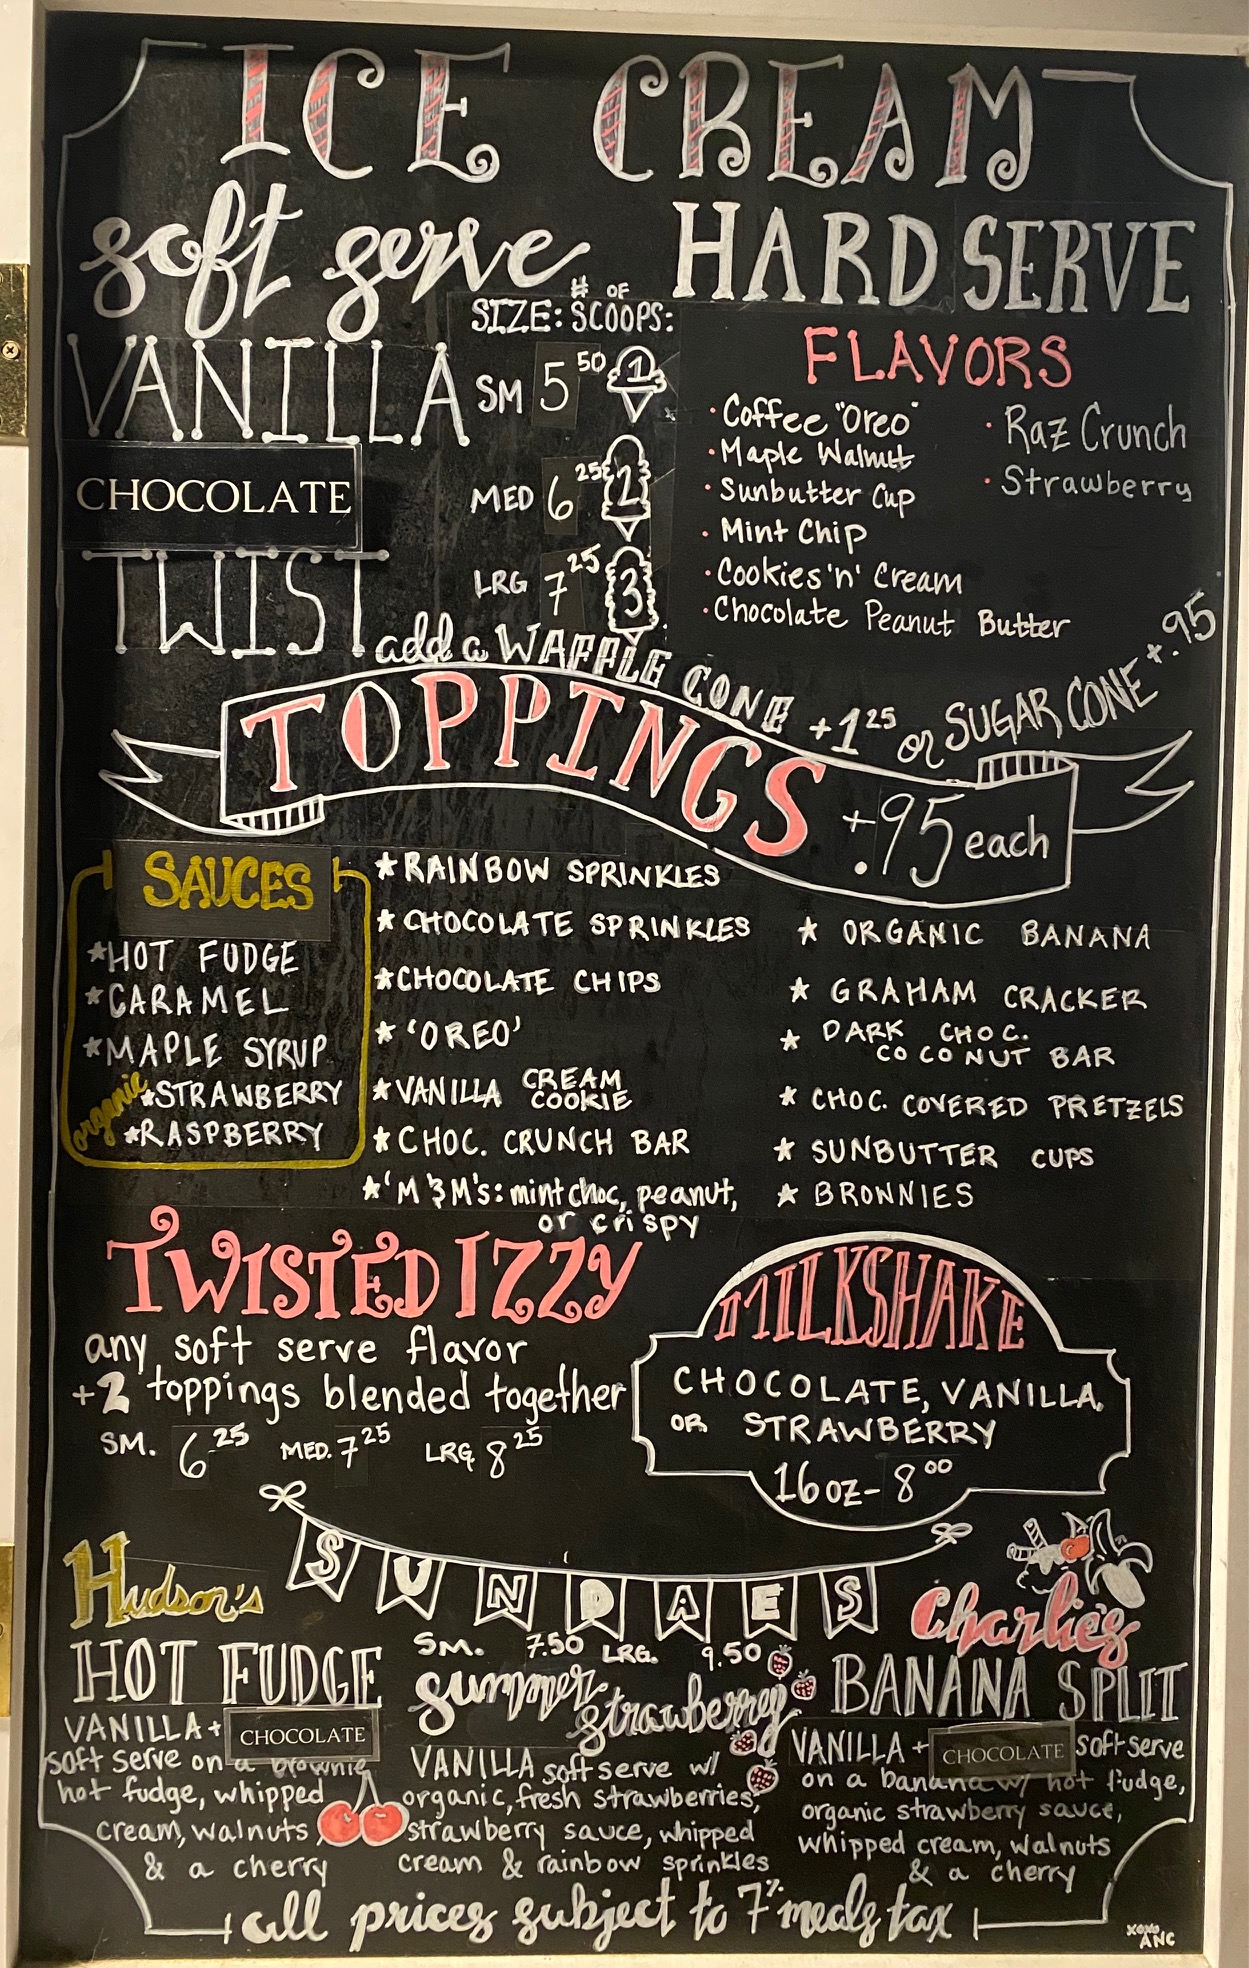 ICE CREAM
soft serve
VANILLA
CHOCOLATE
TWIST
# OF
SIZE: SCOOPS:
SM 5 50 1
MED 6 25 2
LRG 7 25 3
HARD SERVE
FLAVORS
· Coffee "Oreo"
· Maple Walnut
· Sunbutter Cup
· Mint Chip
· Cookies 'n' Cream
· Chocolate Peanut Butter
· Raz Crunch
· Strawberry
add a WAFFLE CONE +1 25 or SUGAR CONE +.95
TOPPINGS +.95 each
SAUCES
*HOT FUDGE
*CARAMEL
*MAPLE SYRUP
organic
*STRAWBERRY
*RASPBERRY
* RAINBOW SPRINKLES
* CHOCOLATE SPRINKLES
* CHOCOLATE CHIPS
* 'OREO'
* VANILLA CREAM
COOKIE
* CHOC. CRUNCH BAR
* 'M&M's: mint choc, peanut,
or crispy
* ORGANIC BANANA
* GRAHAM CRACKER
* DARK CHOC.
COCONUT BAR
* CHOC. COVERED PRETZELS
* SUNBUTTER CUPS
* BROWNIES
TWISTED IZZY
any soft serve flavor
+2 toppings blended together
SM. 6.25 MED. 7 25 LRG. 8 25
MILKSHAKE
CHOCOLATE, VANILLA,
OR STRAWBERRY
16 oz- 8 00
SUNDAES
SM. 7.50 LRG. 9.50
Hudson's
HOT FUDGE
VANILLA + CHOCOLATE
soft serve on a brownie
hot fudge, whipped
cream, walnuts
& a cherry
summer
strawberry
VANILLA soft serve w/
organic, fresh strawberries,
strawberry sauce, whipped
cream & rainbow sprinkles
Charlie's
BANANA SPLIT
VANILLA + CHOCOLATE soft serve
on a banana w/ hot fudge,
organic strawberry sauce,
whipped cream, walnuts
& a cherry
all prices subject to 7% meals tax
xoxo
ANC